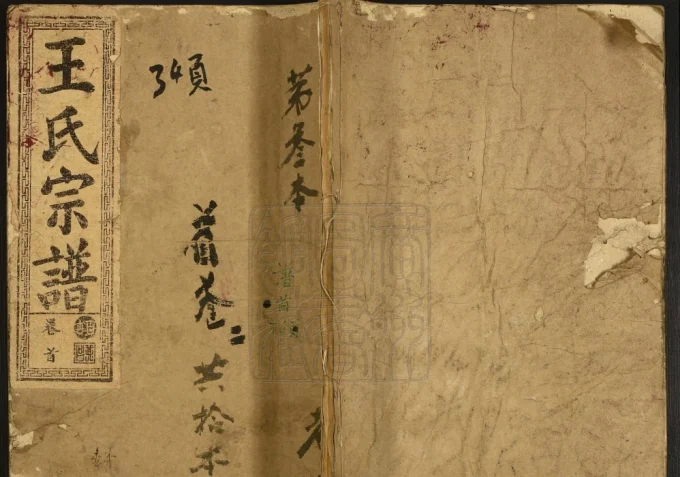 王氏宗譜
卷首
34頁
首卷二
共拾本
第叁本
譜首